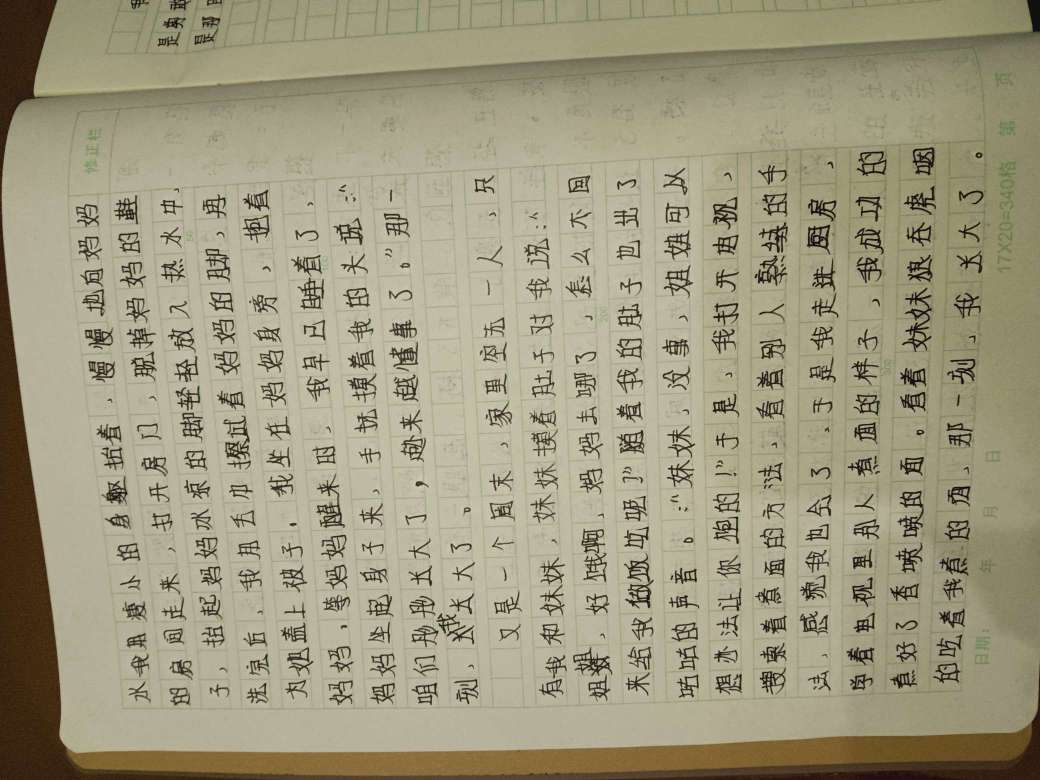 是勇敢
是那
修正栏
水我用瘦小的身躯抬着，慢慢地向妈妈
的房间走来，打开房门，脱掉妈妈的鞋
子，抬起妈妈冰凉的脚轻轻放入热水中，
洗完后，我用毛巾擦试着妈妈的脚，再
为她盖上被子。我坐在妈妈身旁，抱着
妈妈，等妈妈醒来时，我早已睡着了，
妈妈坐起身子来，手抚摸着我的头说：“
咱们彤彤长大了，越来越懂事了。”那一
刻，我长大了。
又是一个周末，家里空无一人，只
有我和妹妹，妹妹摸着肚子对我说：“
姐姐，好饿啊，妈妈去哪了，怎么不回
来给我做饭吃呢？”随着我的肚子也出了
咕咕的声音。：“妹妹，没事，姐姐可以
想办法让你饱的！”于是，我打开电视，
搜索着煮面的方法，看着别人熟练的手
法，感觉我也会了，于是我走进厨房，
学着电视里那人煮面的样子，我成功的
煮好了香喷喷的面。看着妹妹狼吞虎咽
的吃着我煮的面，那一刻，我长大了。
日期： 年 月 日 17X20=340格 第 页